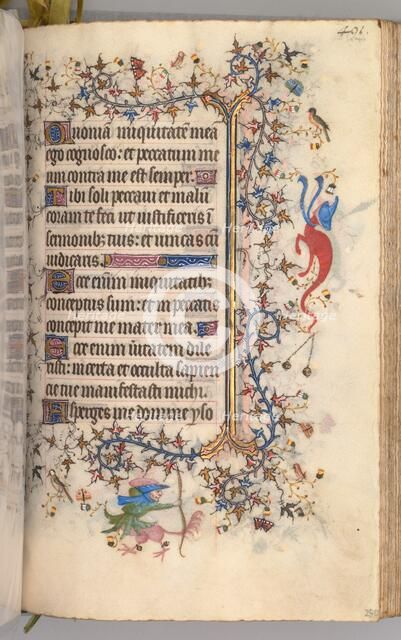 401.
Quoniam iniquitatē meā
ego cognosco: et peccatum me
um contra me est semper.
Tibi soli peccaui et malū
coram te feci ut iustificeris ī
sermonibꝫ tuis: et uincas cū
iudicaris.
Ecce enim iniquitatibꝫ
conceptus sum: et in peccatis
concepit me mater mea.
Ecce enim ueritatem dile
xisti: incerta et occulta sapien
cie tue manifestasti michi.
Asperges me domine yso
Heritage
Heritage
Heritage
Heritage